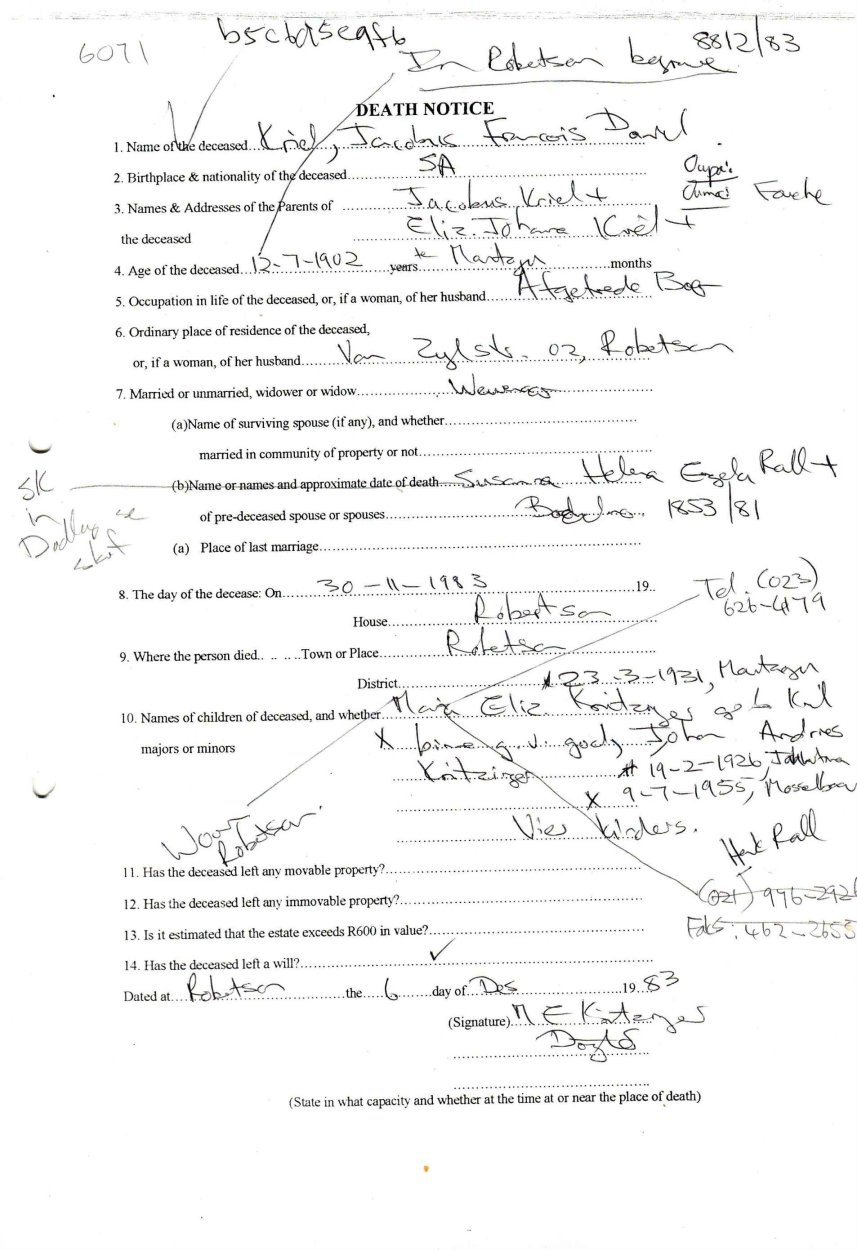 6071
b5c6d5e9f6
8812/83
In Robertson begrawe
DEATH NOTICE
1. Name of the deceased...Kriel, Jacobus Francois Daniel
2. Birthplace & nationality of the deceased...SA
Oupa:
Ouma: Fouche
3. Names & Addresses of the Parents of ...Jacobus Kriel +
the deceased ...Eliz. Johana Kriel +
4. Age of the deceased...12-7-1902...years te Montagu...months
5. Occupation in life of the deceased, or, if a woman, of her husband...Afgetrede Boer
6. Ordinary place of residence of the deceased,
or, if a woman, of her husband...Van Zylstr. 02, Robertson
7. Married or unmarried, widower or widow...Wewenaar
(a)Name of surviving spouse (if any), and whether...
married in community of property or not...
(b)Name or names and approximate date of death...Susanna Helena Engela Rall +
of pre-deceased spouse or spouses... 1853/81
SK
in
(a) Place of last marriage...
8. The day of the decease: On...30-11-1983...19..
Tel. (023)
626-4179
House...Robertson
9. Where the person died.. .. ..Town or Place...Robertson
District...* 23-3-1931, Montagu
10. Names of children of deceased, and whether...Maria Eliz. Kritzinger geb Kriel
majors or minors X binne g.v. goed, Johan Andries
Kritzinger * 19-2-1926,
X 9-7-1955, Mosselbaai
Vier kinders.
Woon
Robertson.
Henk Rall
11. Has the deceased left any movable property?...
12. Has the deceased left any immovable property?...
(021) 996-2926
13. Is it estimated that the estate exceeds R600 in value?...
Faks: 462-2653
14. Has the deceased left a will?...✓
Dated at...Robertson...the...6...day of...Des...19..83
(Signature)...M E Kritzinger
Dogter
(State in what capacity and whether at the time at or near the place of death)